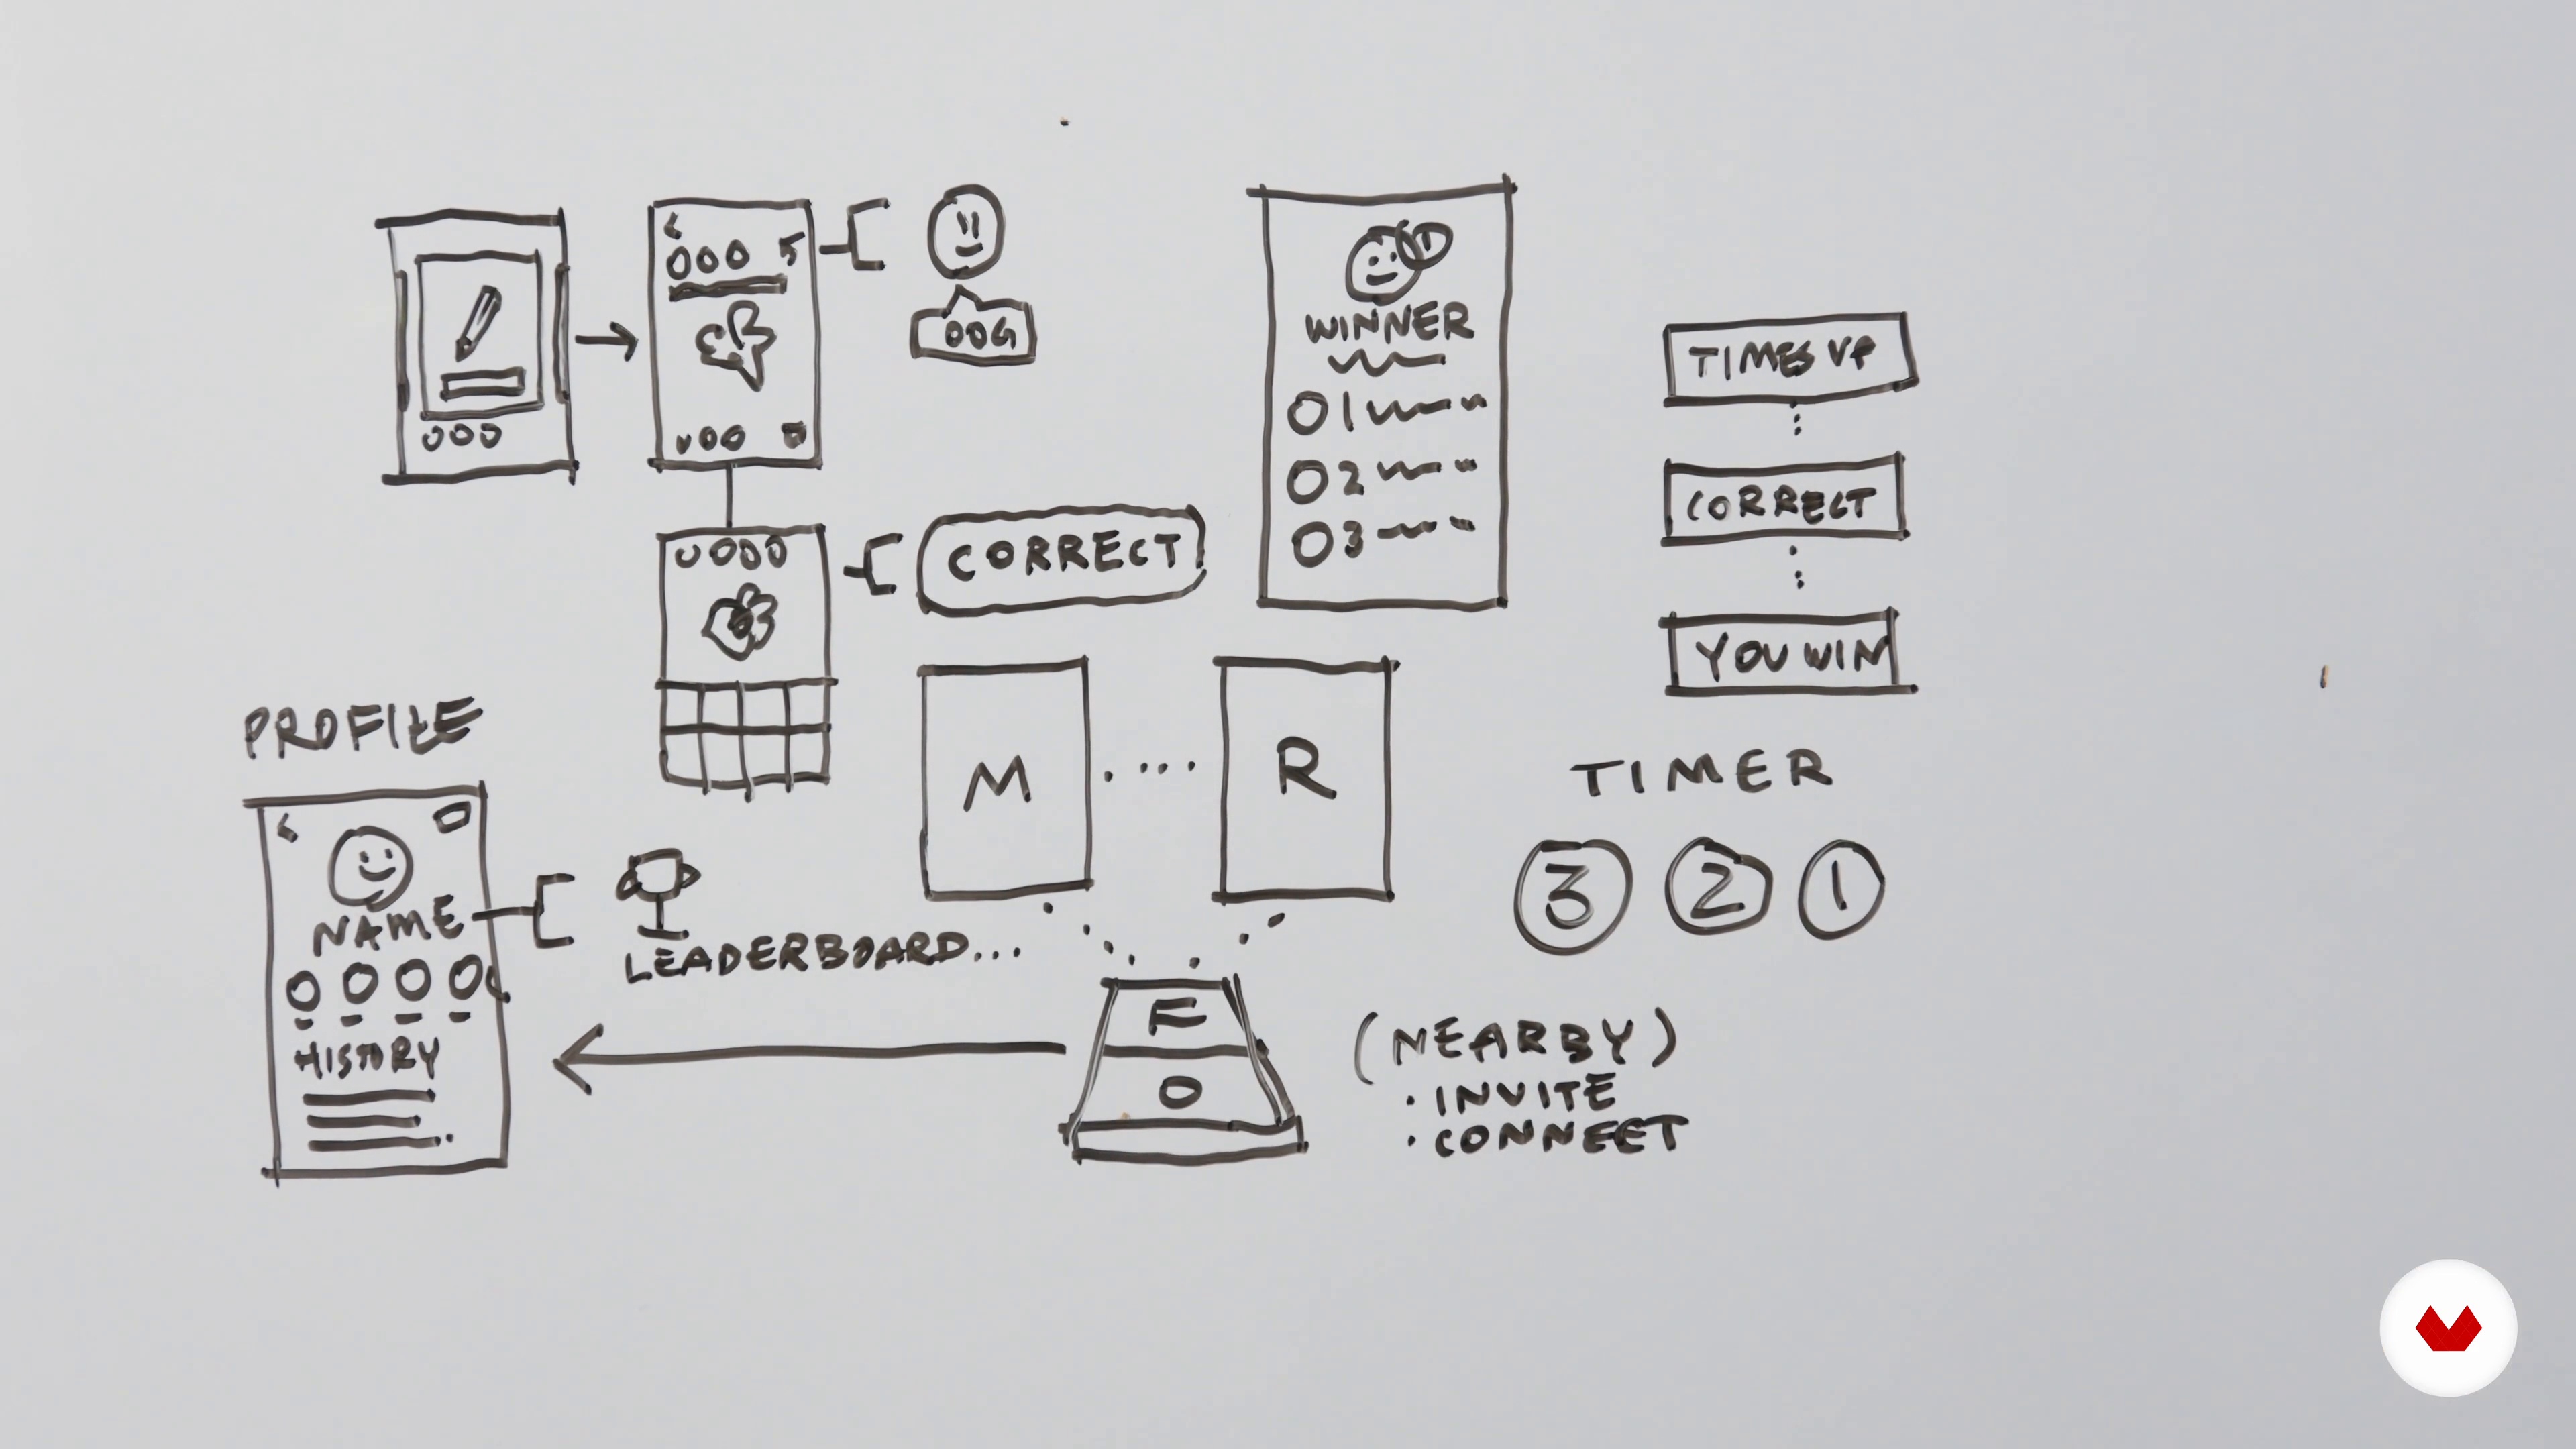 DOG
WINNER
1
2
3
TIMES UP
CORRECT
YOU WIN
CORRECT
M
R
PROFILE
NAME
HISTORY
LEADERBOARD...
F
O
TIMER
3 2 1
(NEARBY)
· INVITE
· CONNECT